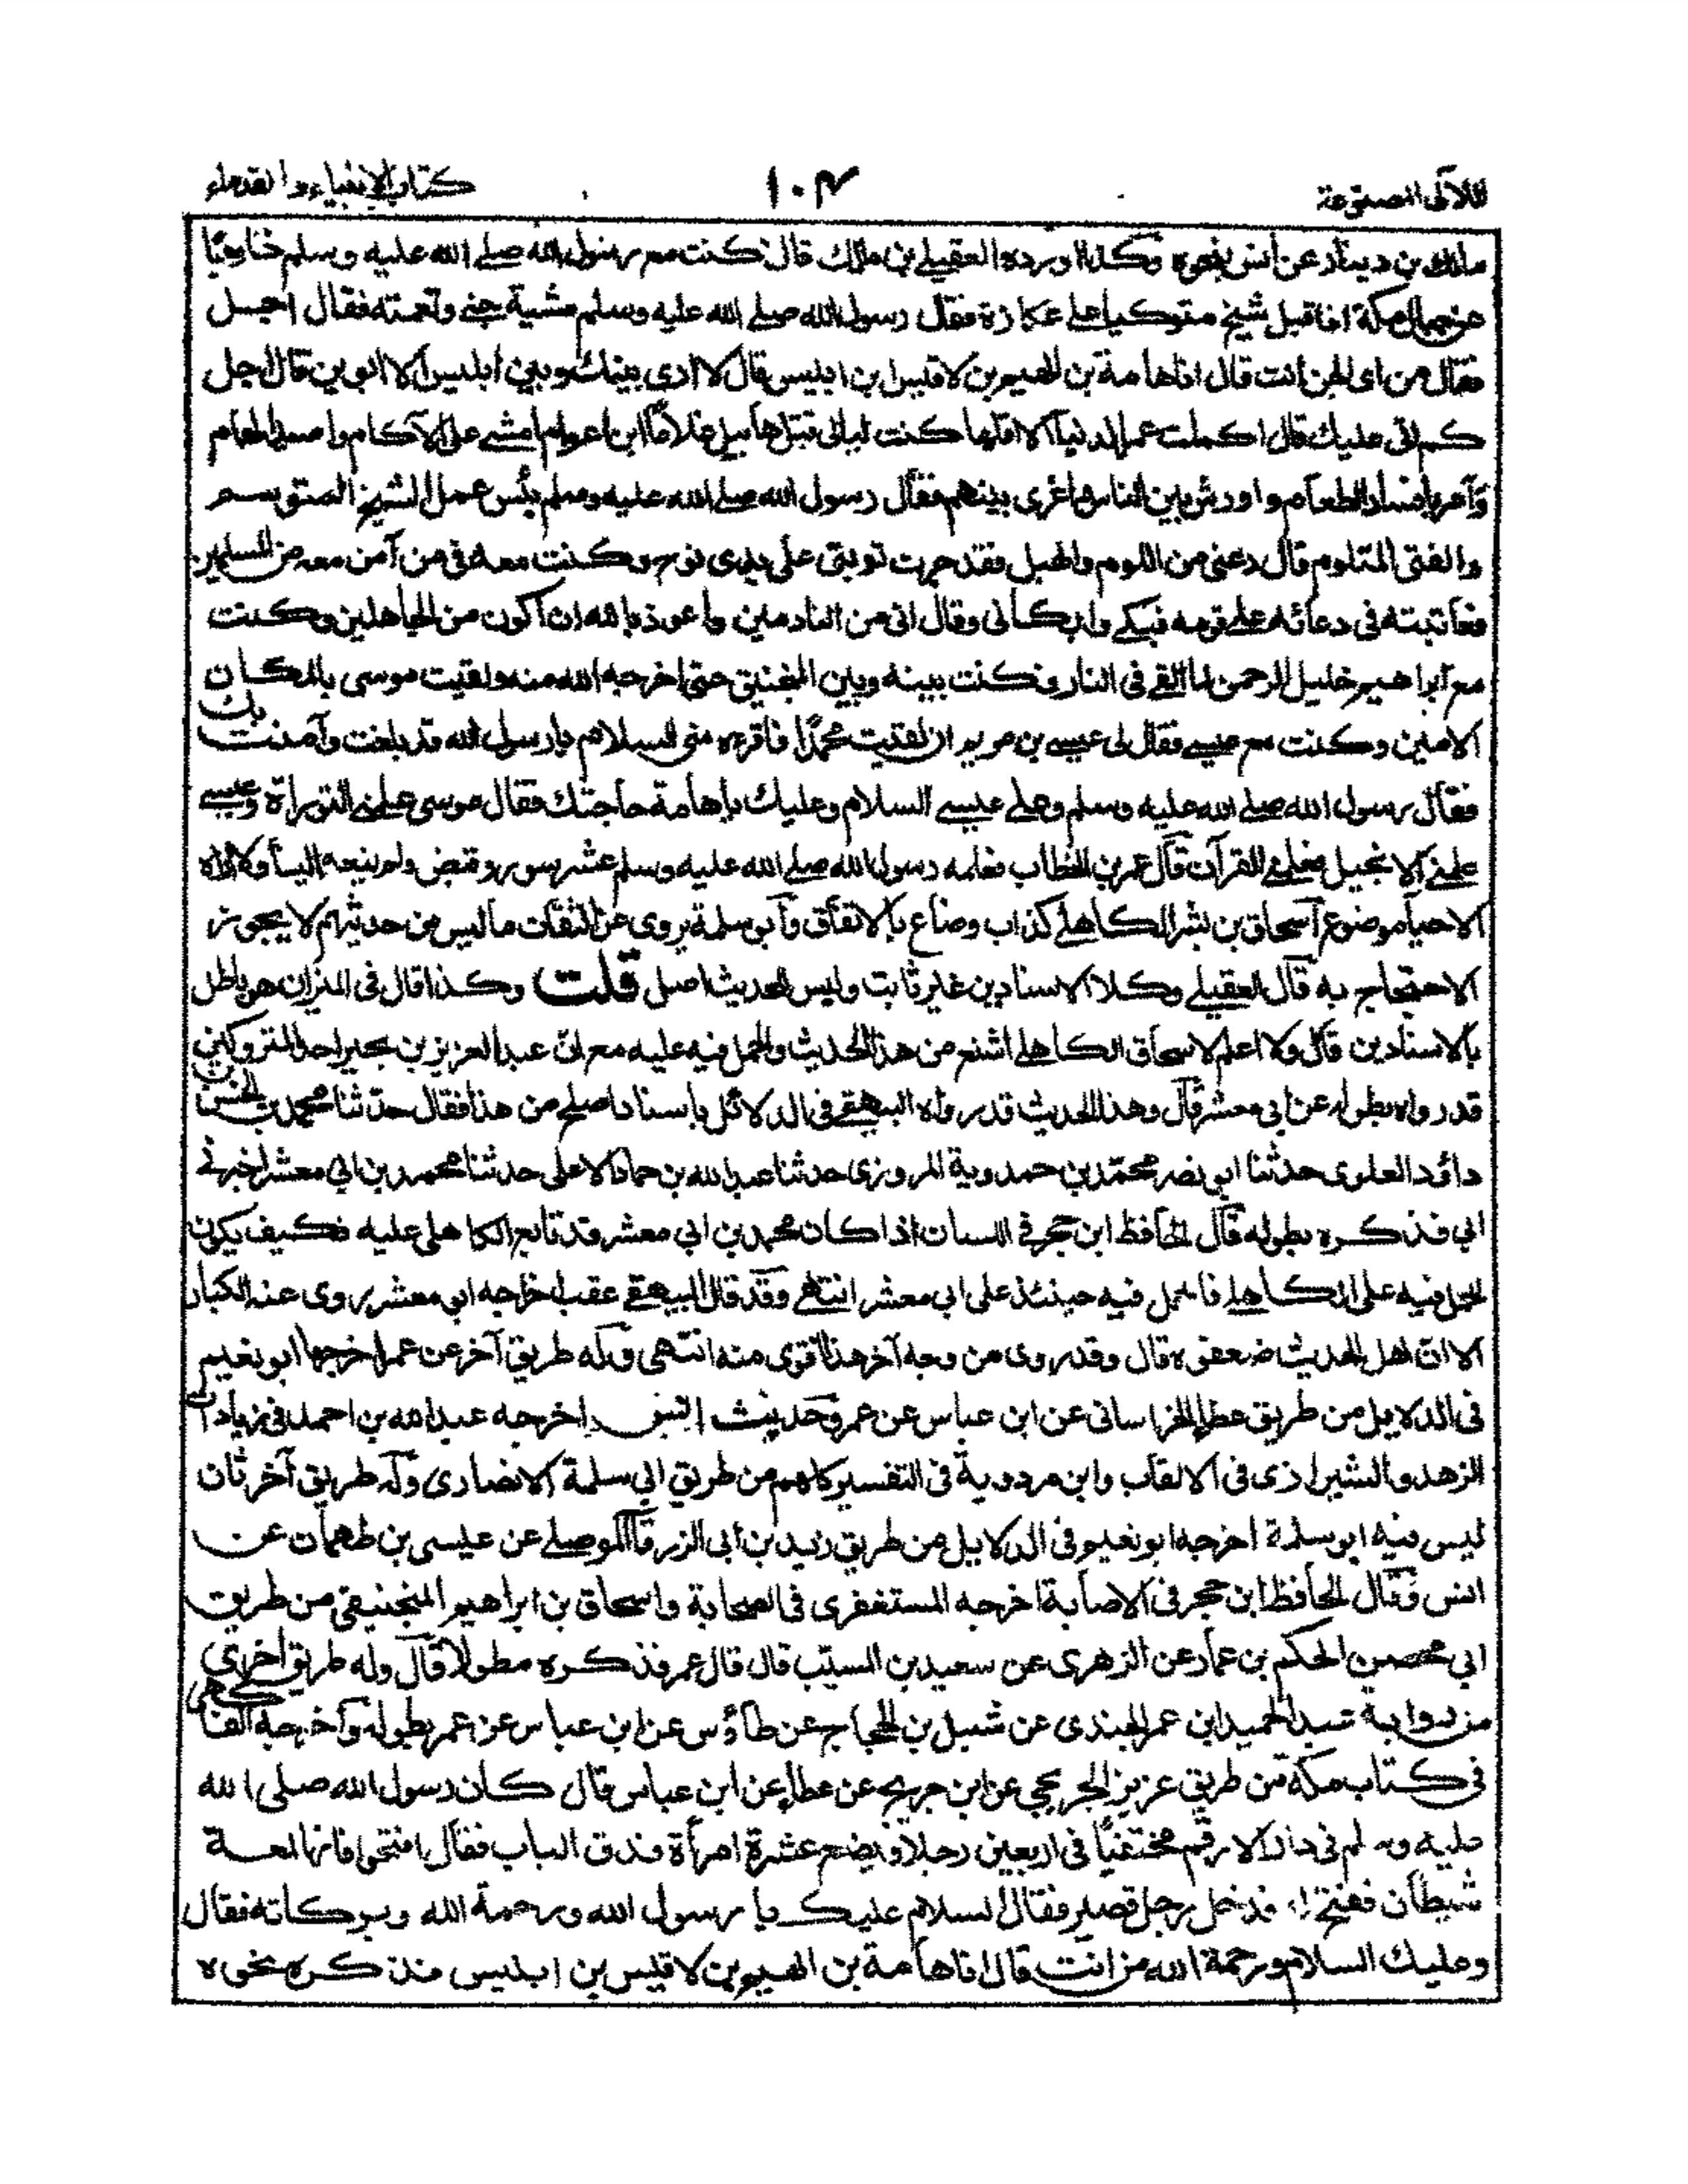 اللآلى المصنوعة
١٠٣
كتاب الانبياء والقدماء
مالك بن دينار عن أنس بنحوه وكذا اورده العقيلے بن مالك قال كنت مع رسول الله صلے الله عليه وسلم خارجًا
عن جبال مكة اذا قبل شيخ متوكيا على عكازة فقال رسول الله صلے الله عليه وسلم مشية جنے ونعمته فقال اجل
فقال من اى الجن أنت قال انا هامة بن الهيم بن لاقيس بن ابليس قال لا ارى بينك وبين أبليس الا ابوين قال اجل
كم اتى عليك قال اكملت عمر الدنيا الا اقلها كنت ليالى قتل هابيل غلامًا ابن اعوام امشے على الآكام واصطاد الهام
وآمر بافساد الطعام واورش بين الناس واغرى بينهم فقال رسول الله صلے الله عليه وسلم بئس عمل الشيخ المتوسم
والفتى المتلوم قال دعنى من اللوم والهبل فقد جرت توبتى على يدى نوح وكنت معه فى من آمن معه من المسلمين
فعاتبته فى دعائه على قومه فبكے وابكانى وقال انى من النادمين واعوذ بالله ان اكون من الجاهلين وكنت
مع ابراهيم خليل الرحمن لما القے فى النار فكنت بينه وبين المنجنيق حتى اخرجه الله منه ولقيت موسى بالمكان
الامين وكنت مع عيسے فقال لى عيسے بن مريم ان لقيت محمدًا فاقره منى السلام يا رسول الله قد بلغت وآمنت بك
فقال رسول الله صلے الله عليه وسلم وعلے عيسے السلام وعليك يا هامة حاجتك فقال موسى علمنے التوراة وعيسے
علمنے الانجيل فعلمنے القرآن قال عمر بن الخطاب فعلمه رسول الله صلے الله عليه وسلم عشر سور وقبض ولم ينعه الينا ولا اراه
الا حيا موضوع آسحاق بن بشر الكاهلے كذاب وضاع بالاتفاق وأبو سلمة يروى عن الثقات ما ليس من حديثهم لا يجوز
الاحتجاج به قال العقيلے وكلا الاسنادين غير ثابت وليس للحديث اصل قلت وكذا قال فى الميزان هو باطل
بالاسنادين قال ولا اعلم لاسحاق الكاهلے اشنع من هذا الحديث والحمل فيه عليه مع ان عبد العزيز بن بحير احد المتروكين
قد رواه بطوله عن ابى معشر قال وهذا الحديث قد رواه البيهقے فى الدلائل باسناد اصلح من هذا فقال حدثنا محمد بن الحسن بن
داؤد العلوى حدثنا ابو نصر محمد بن حمدوية المروزى حدثنا عبد الله بن حماد الاملى حدثنا محمد بن ابي معشر اخبرنے
ابي فذكره بطوله قال الحافظ ابن حجر فے اللسان اذا كان محمد بن ابي معشر قد تابع الكاهلى عليه فكيف يكون
الحمل فيه على الكاهلے فالحمل فيه حينئذ على ابي معشر انتهے وقد قال البيهقے عقب اخراجه ابو معشر روى عنه الكبار
الا ان اهل الحديث ضعفوه قال وقد روى من وجه آخر هذا اقوى منه انتهى وله طريق آخر عن عمر اخرجها ابو نعيم
فى الدلايل من طريق عطاء الخراسانى عن ابن عباس عن عمر وحديث انس اخرجه عبد الله بن احمد فى زيادات
الزهد والشيرازى فى الالقاب وابن مردوية فى التفسير كلهم من طريق ابي سلمة الانصارى وله طريق آخر ثان
ليس فيه ابو سلمة اخرجه ابو نعيم فى الدلايل من طريق زيد بن أبى الزرقاء الموصلے عن عيسى بن طهمان عن
انس وقال الحافظ ابن حجر فى الاصابة اخرجه المستغفرى فى الصحابة واسحاق بن ابراهيم المنجنيقى من طريق
ابي محصن الحكم بن عمار عن الزهرى عن سعيد بن المسيب قال قال عمر فذكره مطولا قال وله طريق اخرى
من رواية عبد الحميد بن عمر الجندى عن شبل بن الحجاج عن طاؤس عن ابن عباس عن عمر بطوله وأخرجه الفاكهى
فى كتاب مكة من طريق عزيز الجريجي عن ابن جريج عن عطاء عن ابن عباس قال كان رسول الله صلى الله
عليه وسلم فى دار الارقم مختفيًا فى اربعين رجلا وبضع عشرة امرأة فدق الباب فقال افتحوا فانها لعسة
شيطان ففتح له فدخل رجل قصير فقال السلام عليك يا رسول الله ورحمة الله وبركاته فقال
وعليك السلام ورحمة الله من انت قال انا هامة بن الهيم بن لاقيس بن ابليس فذكره نحوه